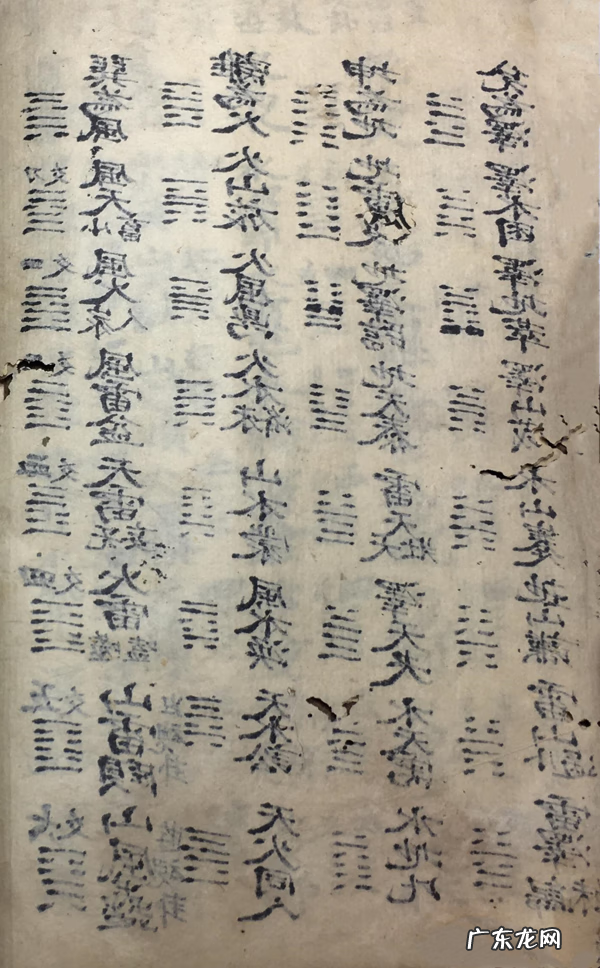 兌為澤 澤水困 澤地萃 澤山咸 水山蹇 地山謙 雷山小過 雷澤歸妹
坤為地 地雷復 地澤臨 地天泰 雷天大壯 澤天夬 水天需 水地比
離為火 火山旅 火風鼎 火水未濟 山水蒙 風水渙 天水訟 天火同人
巽為風 風天小畜 風火家人 風雷益 天雷无妄 火雷噬嗑 山雷頤 山風蠱
广东龙网